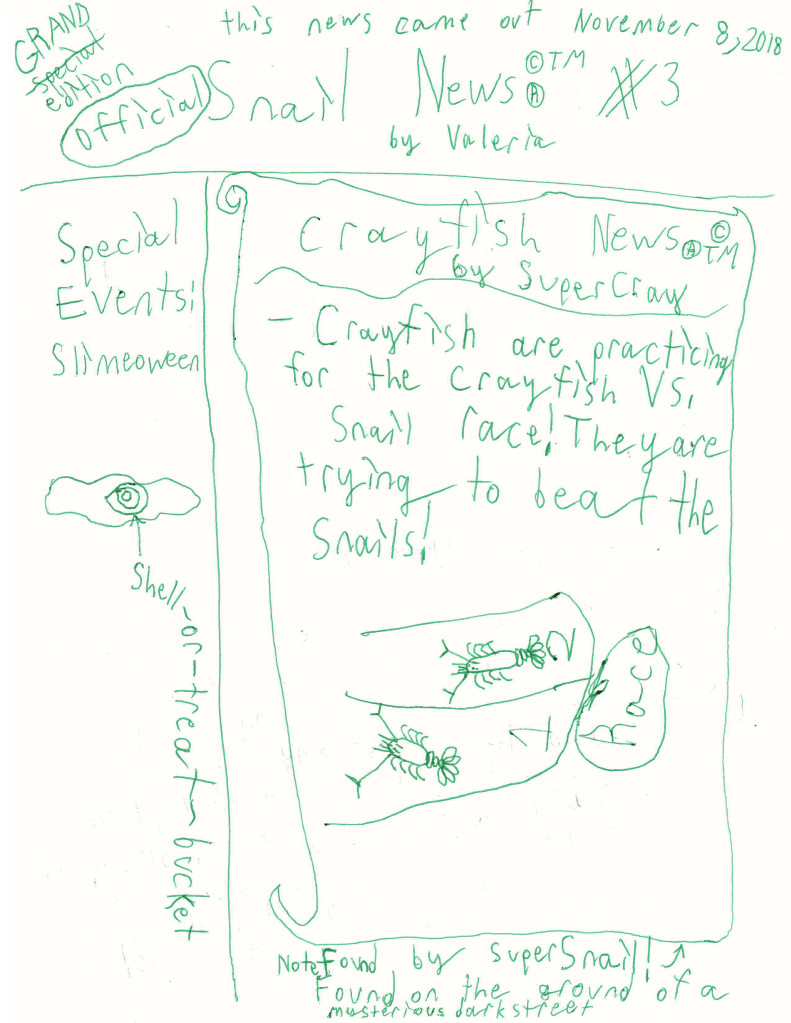 this news came out November 8, 2018
GRAND
special
edition
official Snail News ©TM Ⓐ #3
by Valeria
Special
Events!
Slimeoween
Shell-or-treat-bucket
Crayfish News Ⓐ ©TM
by SuperCray
- Crayfish are practicing
for the crayfish VS.
Snail race! They are
trying to beat the
Snails!
2
1
Race
Note: Found by superSnail!
Found on the ground of a
mysterious dark street